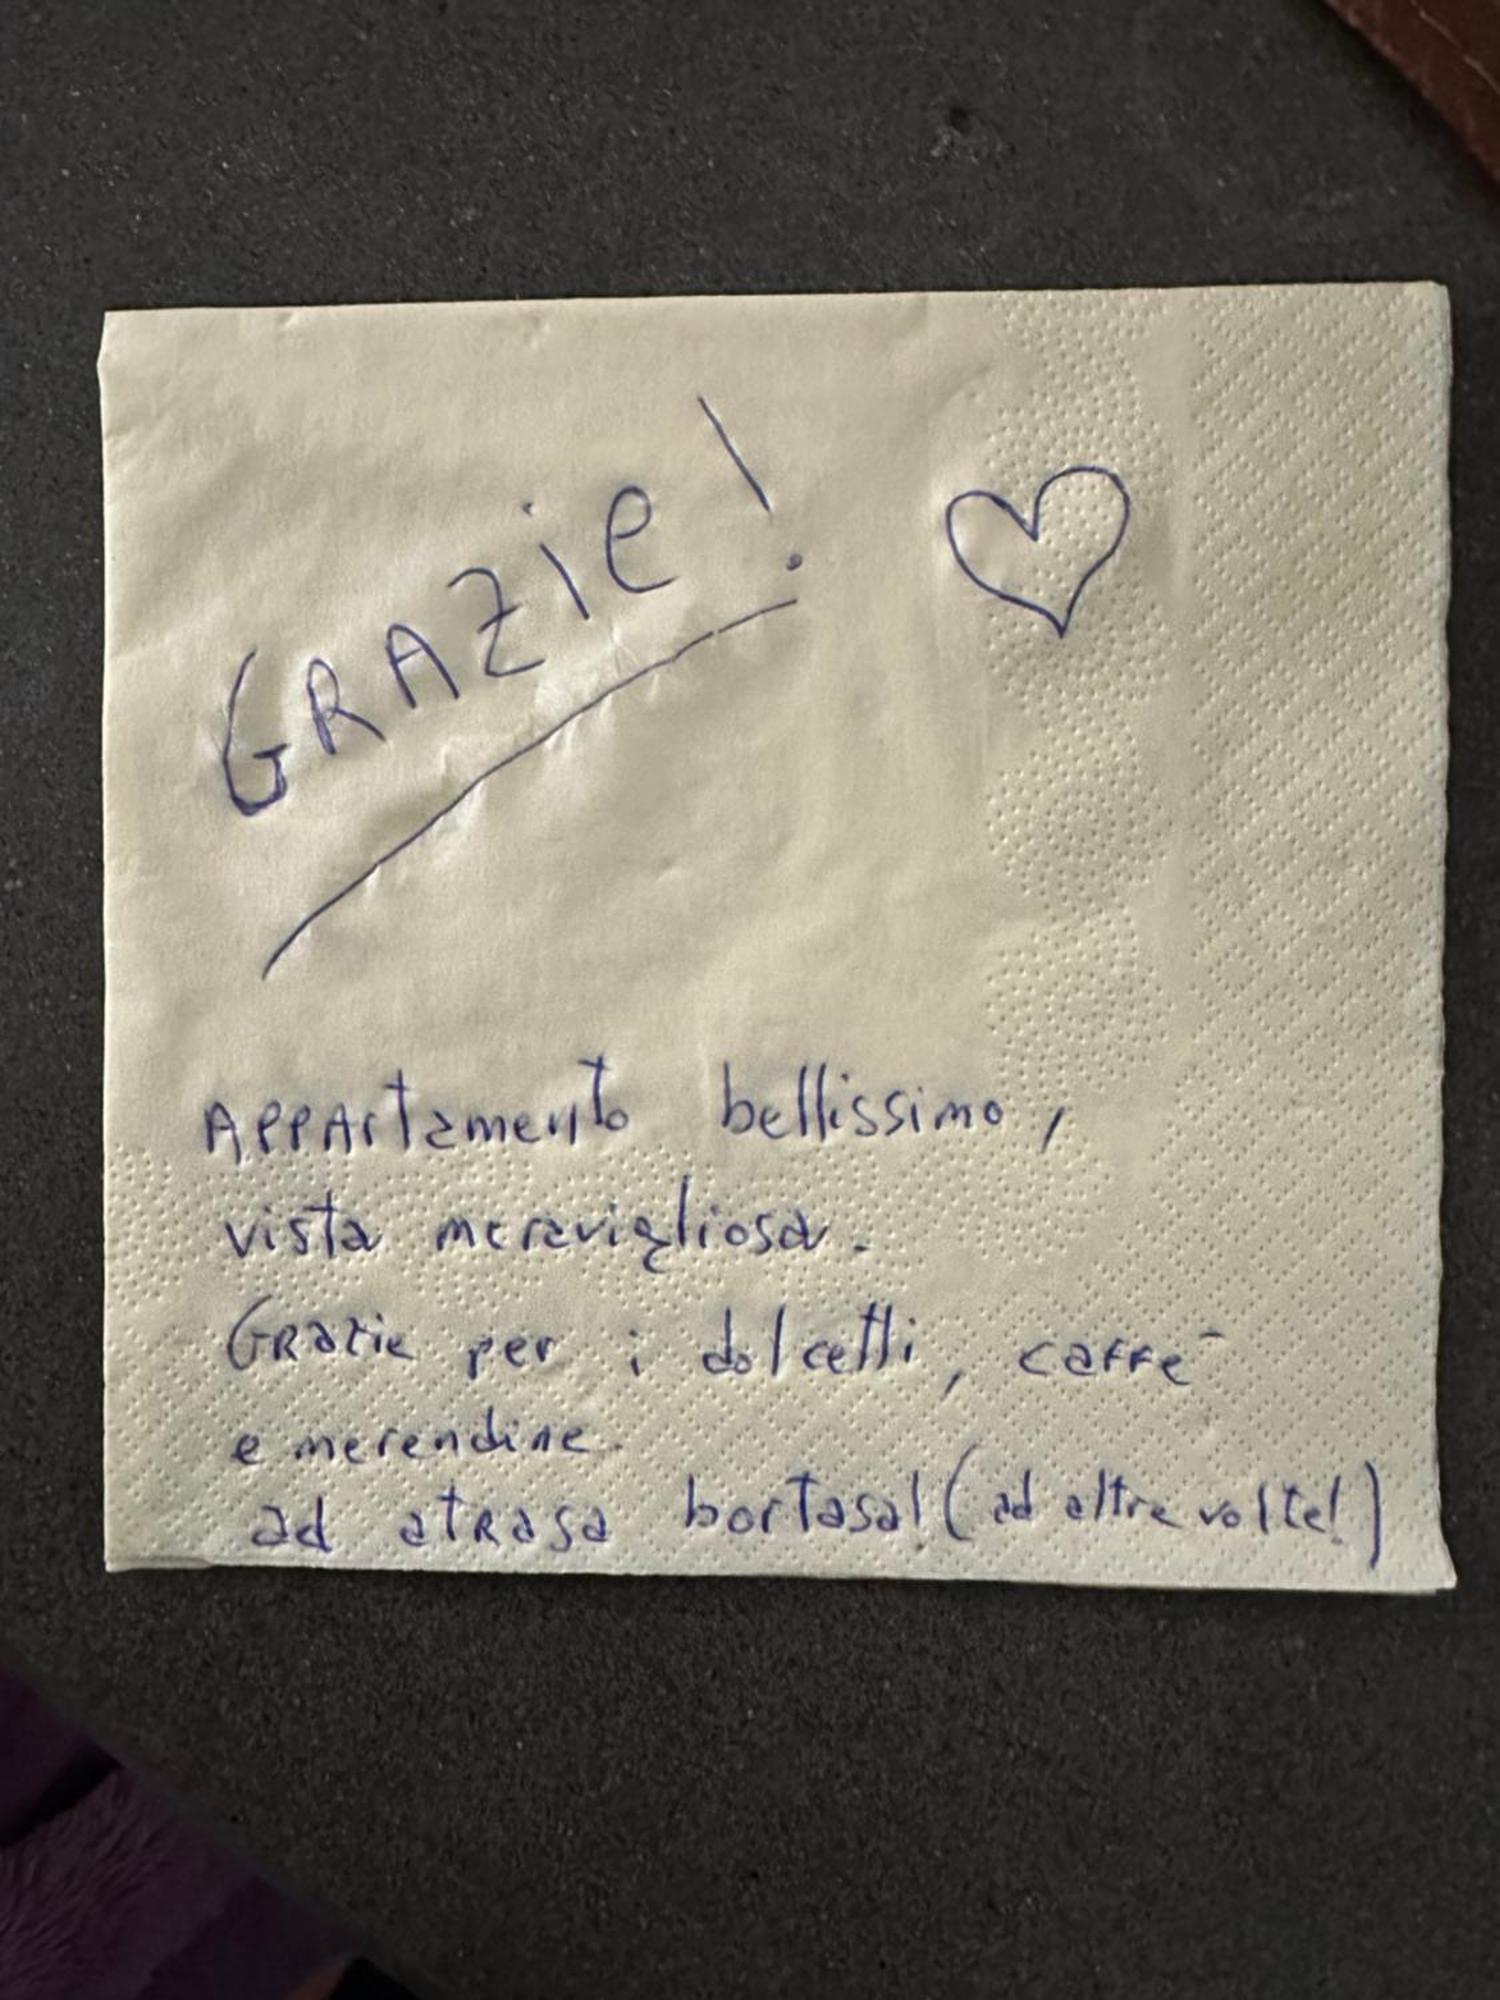 GRAZie!
APPArtamento bellissimo,
vista meravigliosa.
GRazie per i dolcetti, caffè
e merendine.
ad atRasa bortasa! (ad altre volte!)